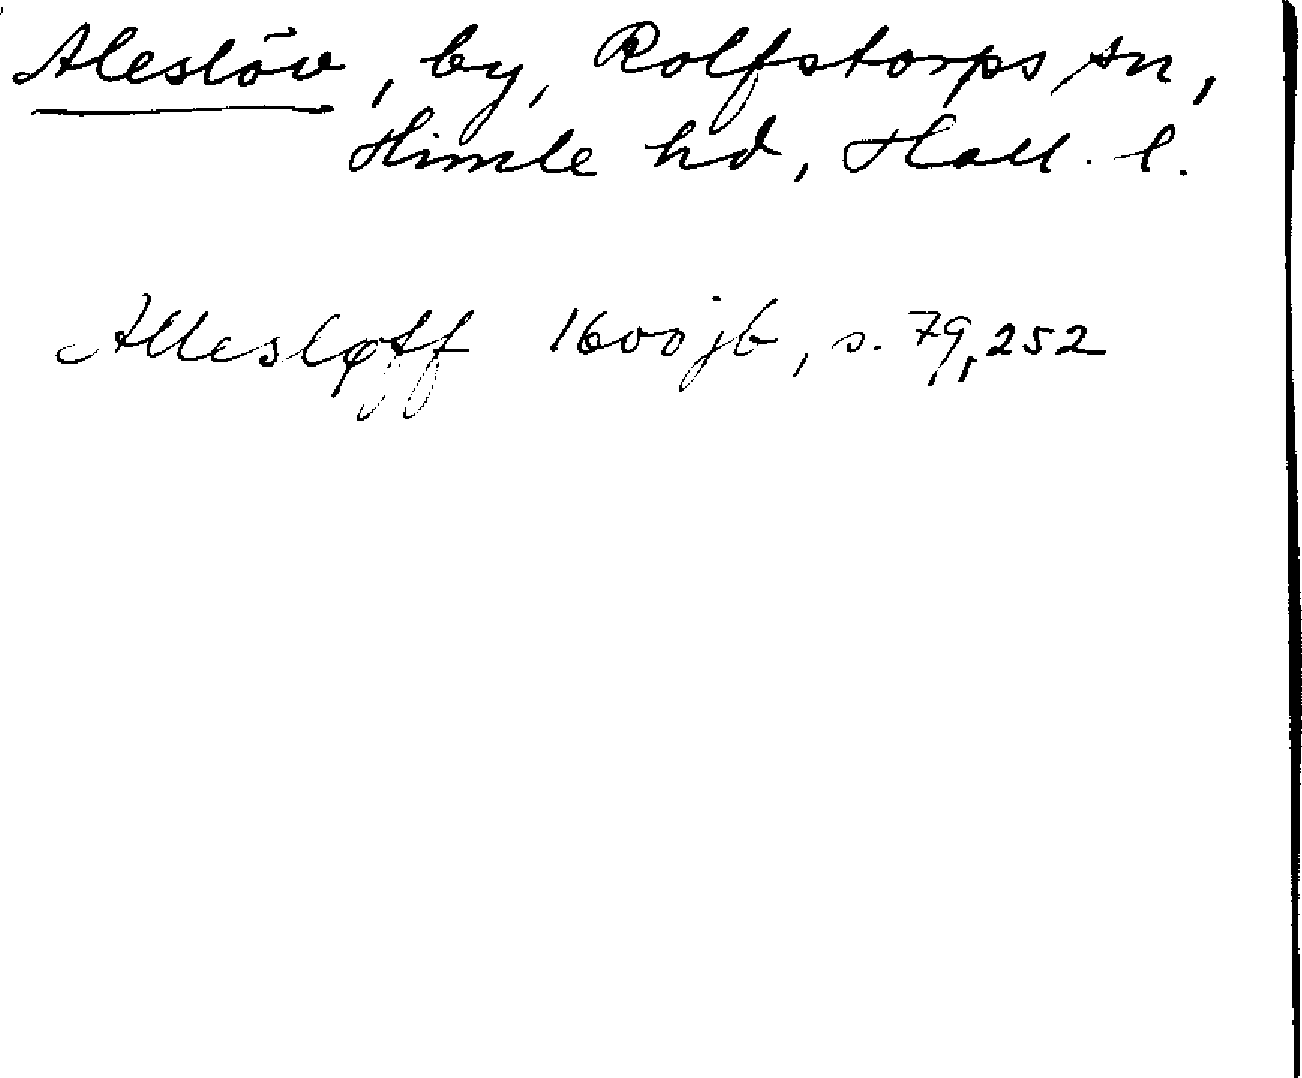 Aleslöv, by, Rolfstorps sn,
Himle hd, Hall. l.
Allesløff 1600 jb, s. 79, 252